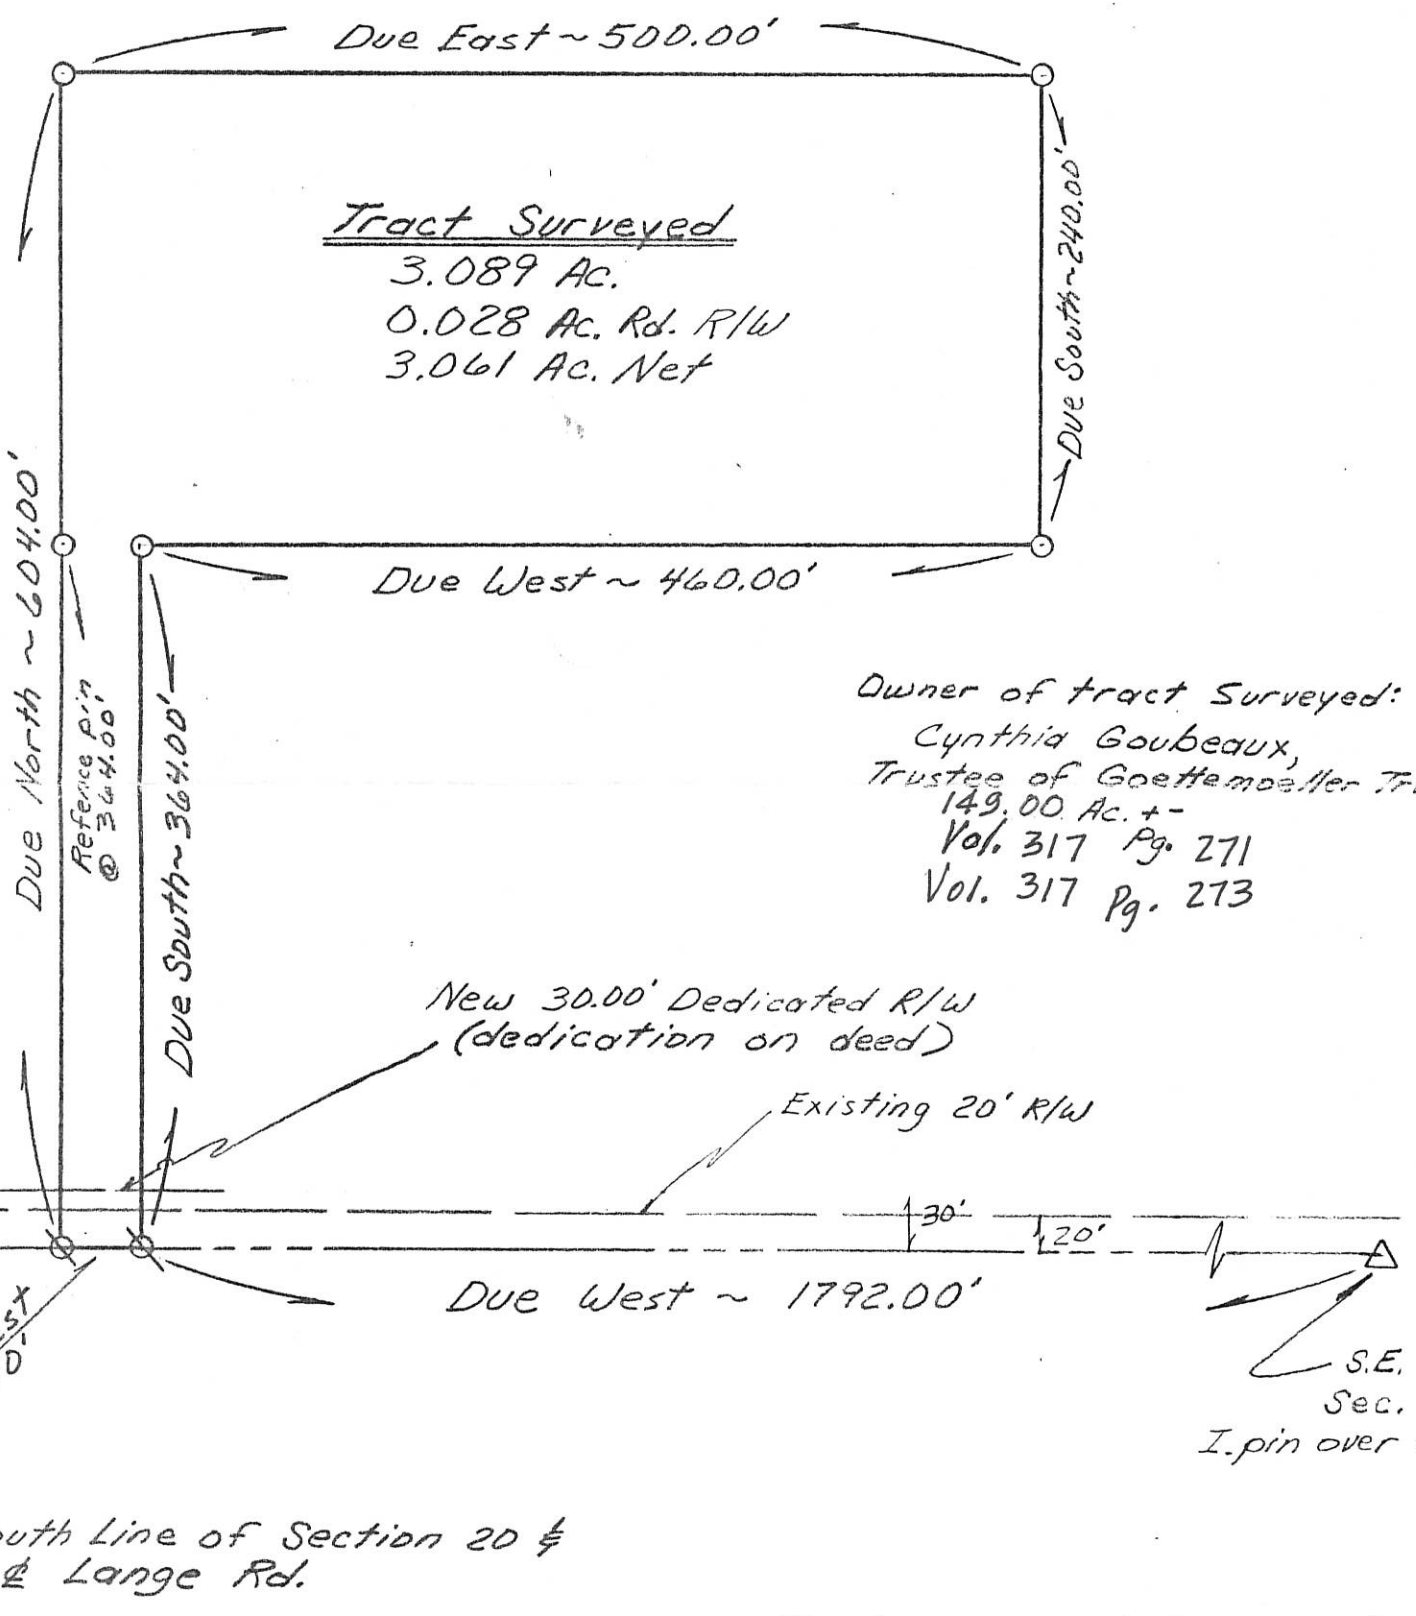 Due East ~ 500.00'
Due South ~ 240.00'
Tract Surveyed
3.089 Ac.
0.028 Ac. Rd. R/W
3.061 Ac. Net
Due North ~ 604.00'
Due West ~ 460.00'
Refence pin
@ 364.00'
Due South ~ 364.00'
Owner of tract Surveyed:
Cynthia Goubeaux,
Trustee of Goettemoeller
149.00 Ac. +-
Vol. 317 Pg. 271
Vol. 317 Pg. 273
New 30.00' Dedicated R/W
(dedication on deed)
Existing 20' R/W
30'
20'
Due West ~ 1792.00'
S.E.
Sec.
I. pin over
Line of Section 20 &
℄ Lange Rd.